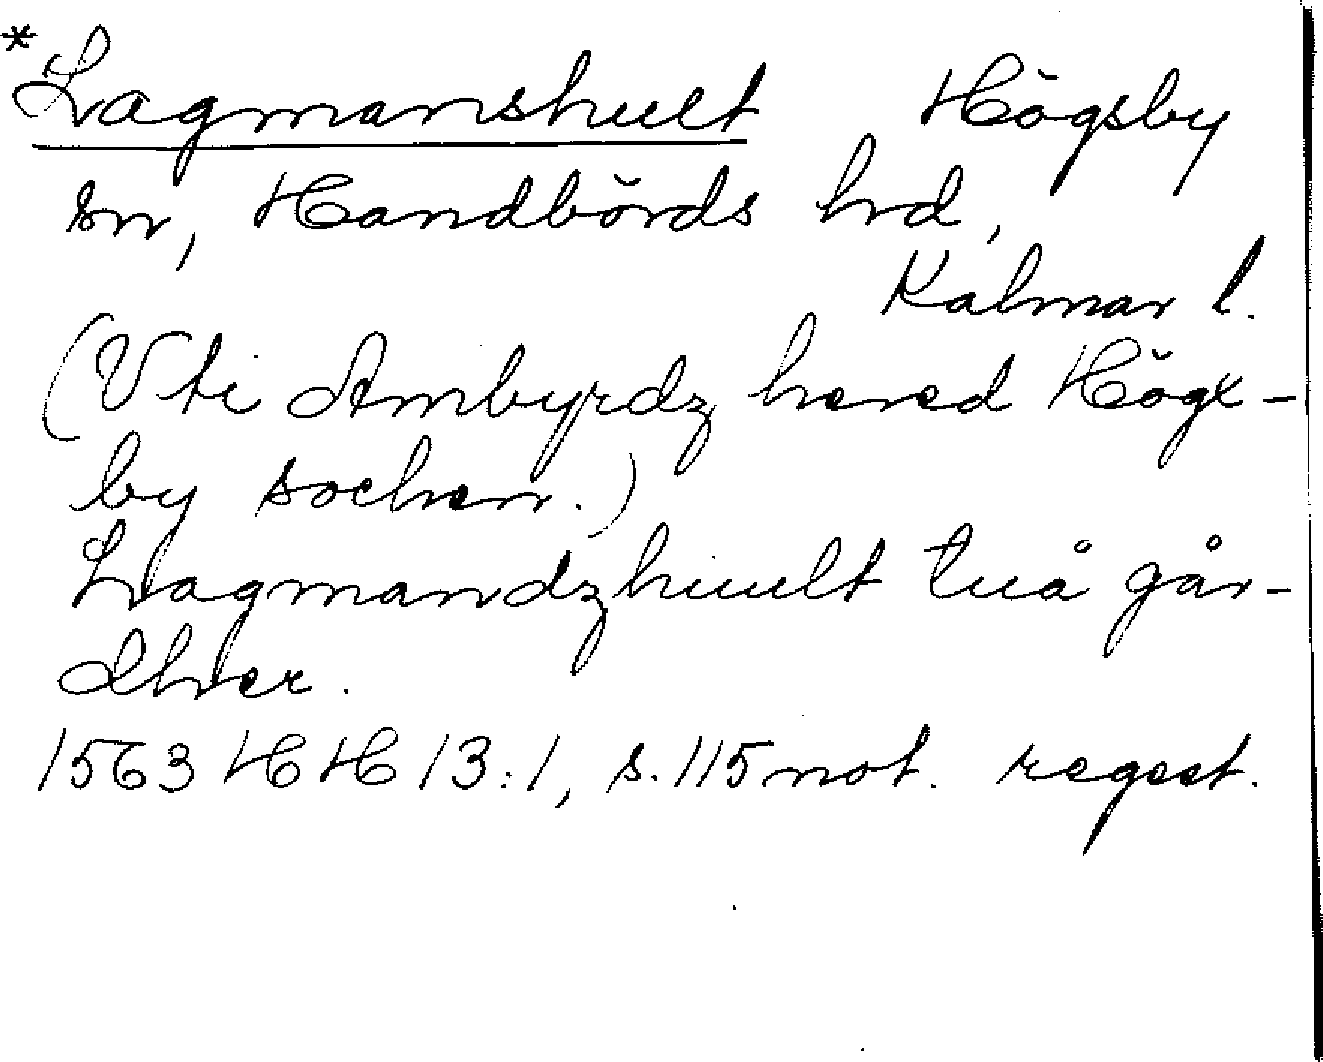 *Lagmanshult Högsby
sn, Handbörds hd,
Kalmar l.
(Vti Ambyrdz hered Högx-
by sochen.)
Lagmandzhuult tuå går-
dher.
1563 HH 13:1, s. 115 not. regest.